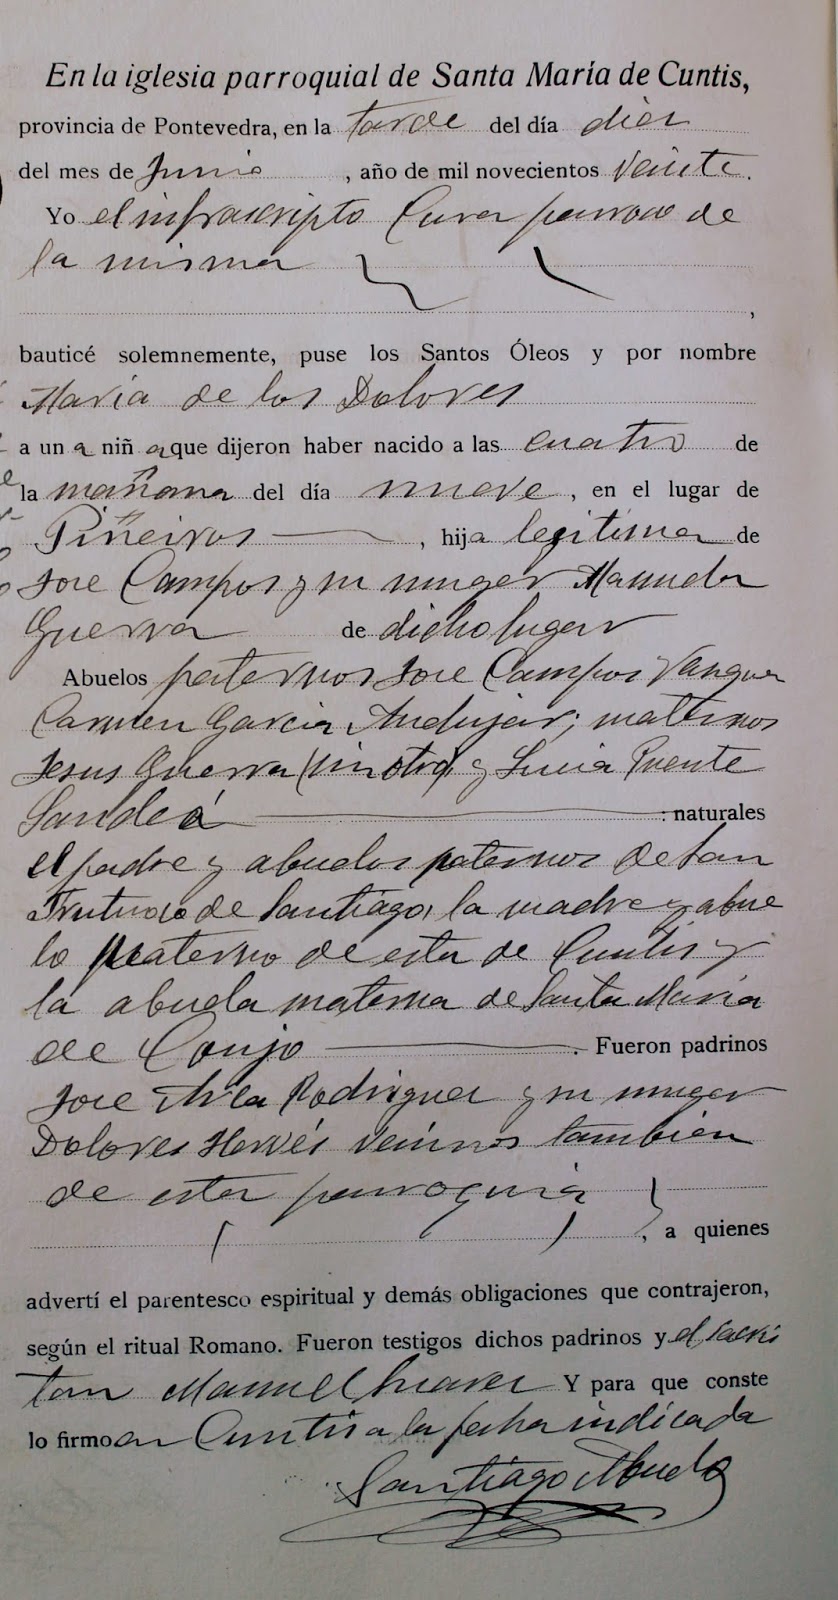 En la iglesia parroquial de Santa María de Cuntis,
provincia de Pontevedra, en la tarde del día diez
del mes de Junio , año de mil novecientos veinte.
Yo el infrascripto Cura parroco de
la misma
,
bauticé solemnemente, puse los Santos Óleos y por nombre
María de los Dolores
a un a niñ a que dijeron haber nacido a las cuatro de
la mañana del día nueve, en el lugar de
Piñeiros , hija legitima de
Jose Campos y su muger Manuela
Guerra de dicho lugar
Abuelos paternos Jose Campos
Carmen Garcia Andujar; maternos
Jesus Guerra y Lucia Puente
: naturales
el padre y abuelos paternos de San
Fructuoso de Santiago, la madre y abue
lo materno de esta de Cuntis y
la abuela materna de Santa Maria
de Conjo . Fueron padrinos
Jose Rodriguez y su muger
Dolores Hervés vecinos tambien
de esta parroquia
, a quienes
advertí el parentesco espiritual y demás obligaciones que contrajeron,
según el ritual Romano. Fueron testigos dichos padrinos y el sacris
tan Manuel Y para que conste
lo firmo en Cuntis a la fecha indicada
Santiago